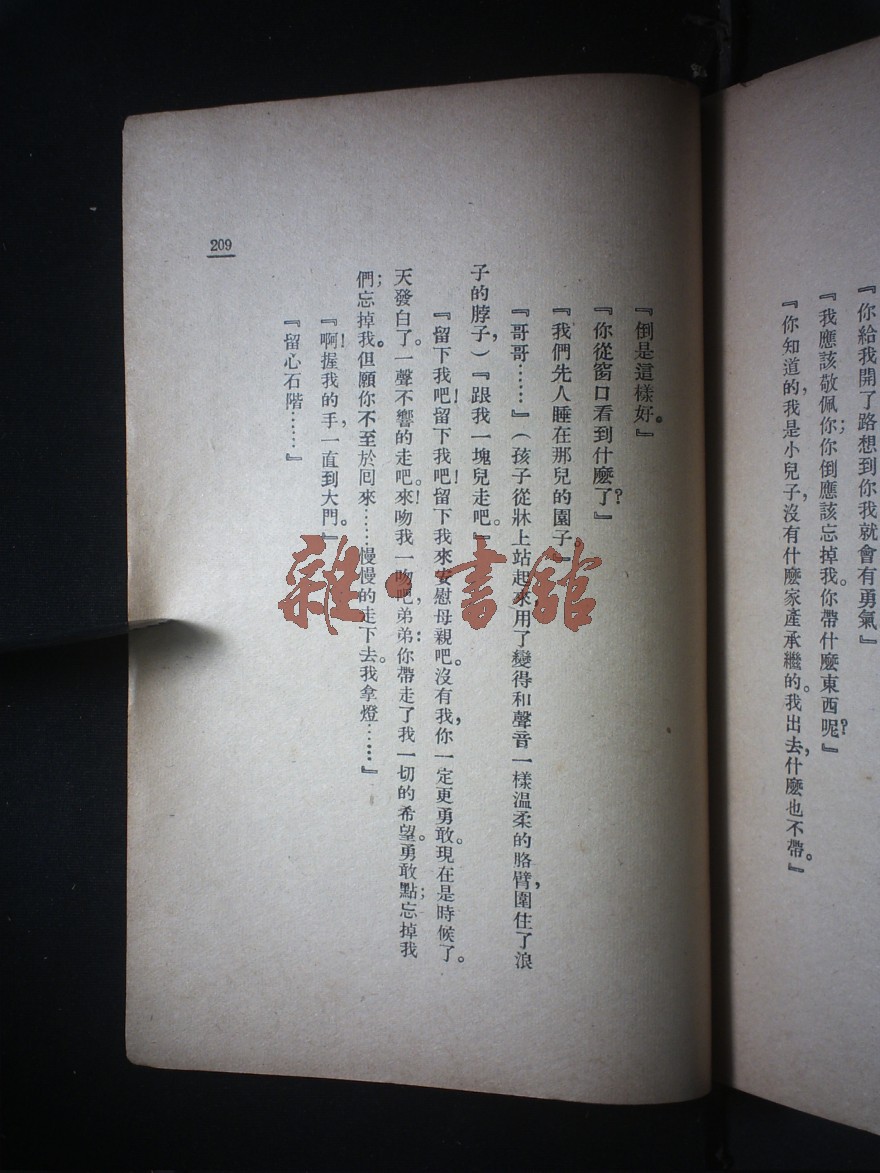 『你給我開了路想到你我就會有勇氣』
『我應該敬佩你；你倒應該忘掉我。你帶什麼東西呢？』
『你知道的，我是小兒子，沒有什麼家產承繼的。我出去，什麼也不帶。』
『倒是這樣好。』
『你從窗口看到什麼了？』
『我們先人睡在那兒的園子。』
『哥哥……』（孩子從牀上站起來，用了變得和聲音一樣溫柔的胳臂，圍住了浪
子的脖子，）『跟我一塊兒走吧。』
『留下我吧！留下我吧！留下我來安慰母親吧。沒有我，你一定更勇敢。現在是時候了。
天發白了。一聲不響的走吧。來！吻我一吻吧，弟弟：你帶走了我一切的希望。勇敢點；忘掉我
們；忘掉我。但願你不至於回來……慢慢的走下去。我拿燈……』
『啊！握我的手，一直到大門。』
『留心石階……』
209
雜·書館